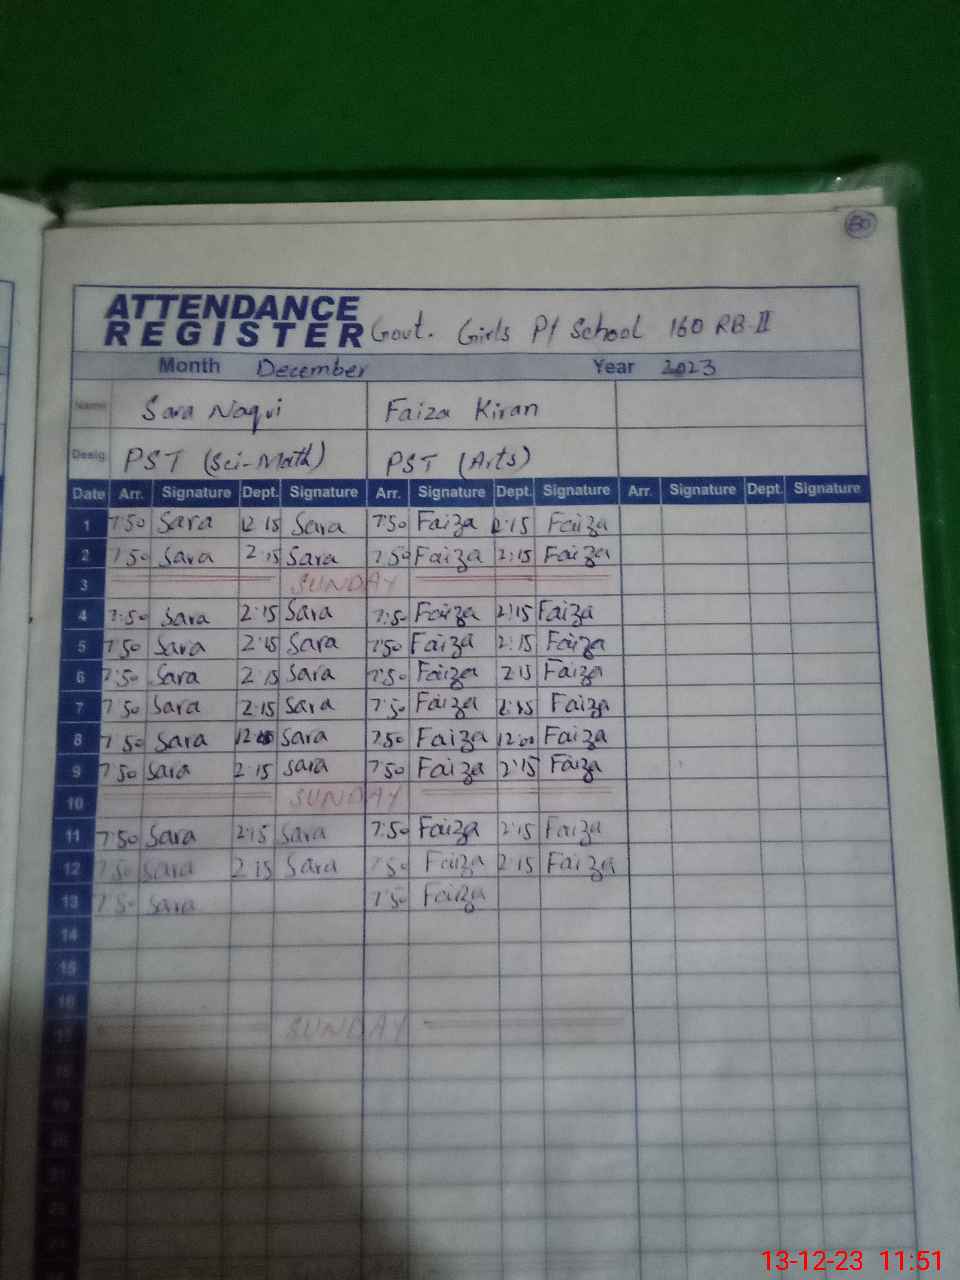 80
ATTENDANCE
REGISTER Govt. Girls P/ School 160 RB-II
Month December Year 2023
Name Sara Naqvi Faiza Kiran
Desig. PST (Sci-Math) PST (Arts)
Date Arr. Signature Dept. Signature Arr. Signature Dept. Signature Arr. Signature Dept. Signature
1 7:50 Sara 12:15 Sara 7:50 Faiza 12:15 Faiza
2 7:50 Sara 2:15 Sara 7:50 Faiza 2:15 Faiza
3 SUNDAY
4 7:50 Sara 2:15 Sara 7:50 Faiza 2:15 Faiza
5 7:50 Sara 2:15 Sara 7:50 Faiza 2:15 Faiza
6 7:50 Sara 2:15 Sara 7:50 Faiza 2:15 Faiza
7 7:50 Sara 2:15 Sara 7:50 Faiza 2:15 Faiza
8 7:50 Sara Sara 7:50 Faiza 12:00 Faiza
9 7:50 Sara 2:15 Sara 7:50 Faiza 2:15 Faiza
10 SUNDAY
11 7:50 Sara 2:15 Sara 7:50 Faiza 2:15 Faiza
12 7:50 Sara 2:15 Sara 7:50 Faiza 2:15 Faiza
13 7:50 Sara 7:50 Faiza
14
15
16
17 SUNDAY
18
19
20
21
22
13-12-23 11:51